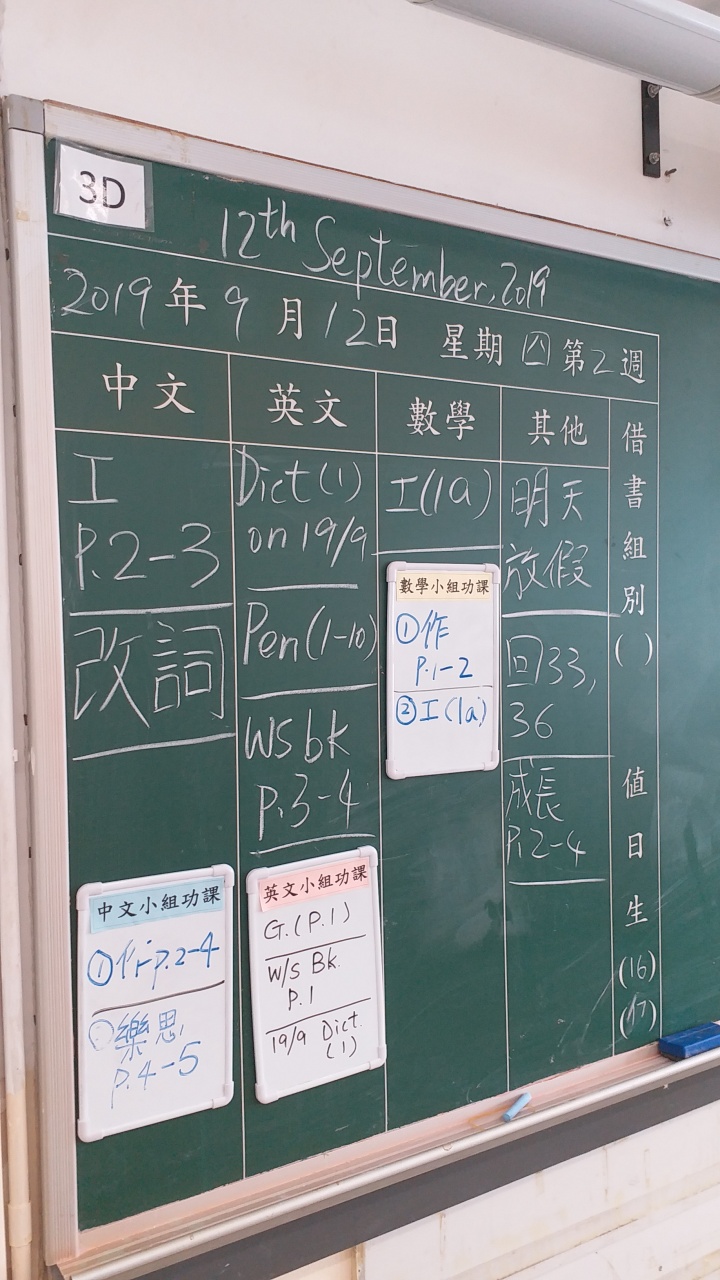 3D
12th September, 2019
2019年9月12日 星期四第2週
中文
英文
數學
其他
借書組別( )
值日生(16)(17)
工
P.2-3
改詞
Dict(1)
on 19/9
Pen(1-10)
WS bk
P.3-4
工(1a)
明天
放假
回33,
36
成長
P.2-4
數學小組功課
①作
P.1-2
②工(1a)
中文小組功課
①作P.2-4
②樂思
P.4-5
英文小組功課
G.(P.1)
W/S Bk.
P.1
19/9 Dict.
(1)